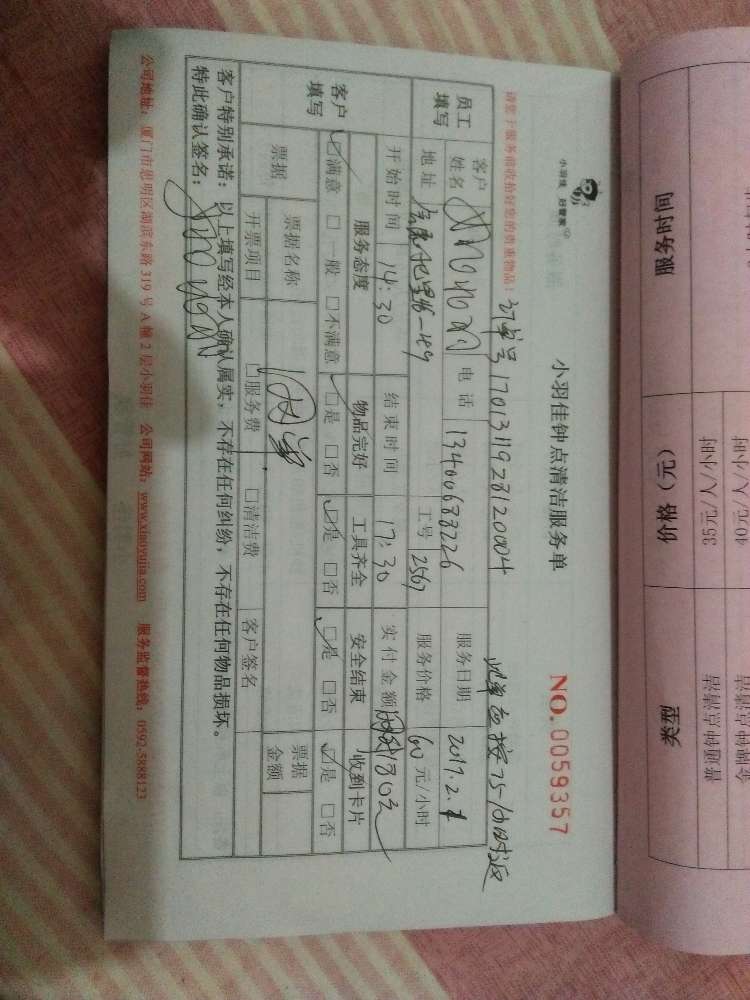 小羽佳 好管家
小羽佳钟点清洁服务单
NO.0059357
请您于服务前收拾好您的贵重物品!
订单号1701311928120004
员工填写
客户姓名 电话 13400688226 服务日期 2017.2.1
地址 工号 2567 服务价格 60元/小时
开始时间 14:30 结束时间 17:30 实付金额 180元
客户填写
服务态度 物品完好 工具齐全 安全结束 收到卡片
☑满意 □一般 □不满意 ☑是 □否 ☑是 □否 ☑是 □否 ☑是 □否
票据 票据名称 票据金额
开票项目 □服务费 □清洁费 客户签名
客户特别承诺:以上填写经本人确认属实,不存在任何纠纷,不存在任何物品损坏。
特此确认签名:
公司地址:厦门市思明区湖滨东路319号A幢2层小羽佳 公司网站:www.xiaoyujia.com 服务监督热线:0592-5888123
服务时间 价格(元) 类型
35元/人/小时 普通钟点清洁
40元/人/小时